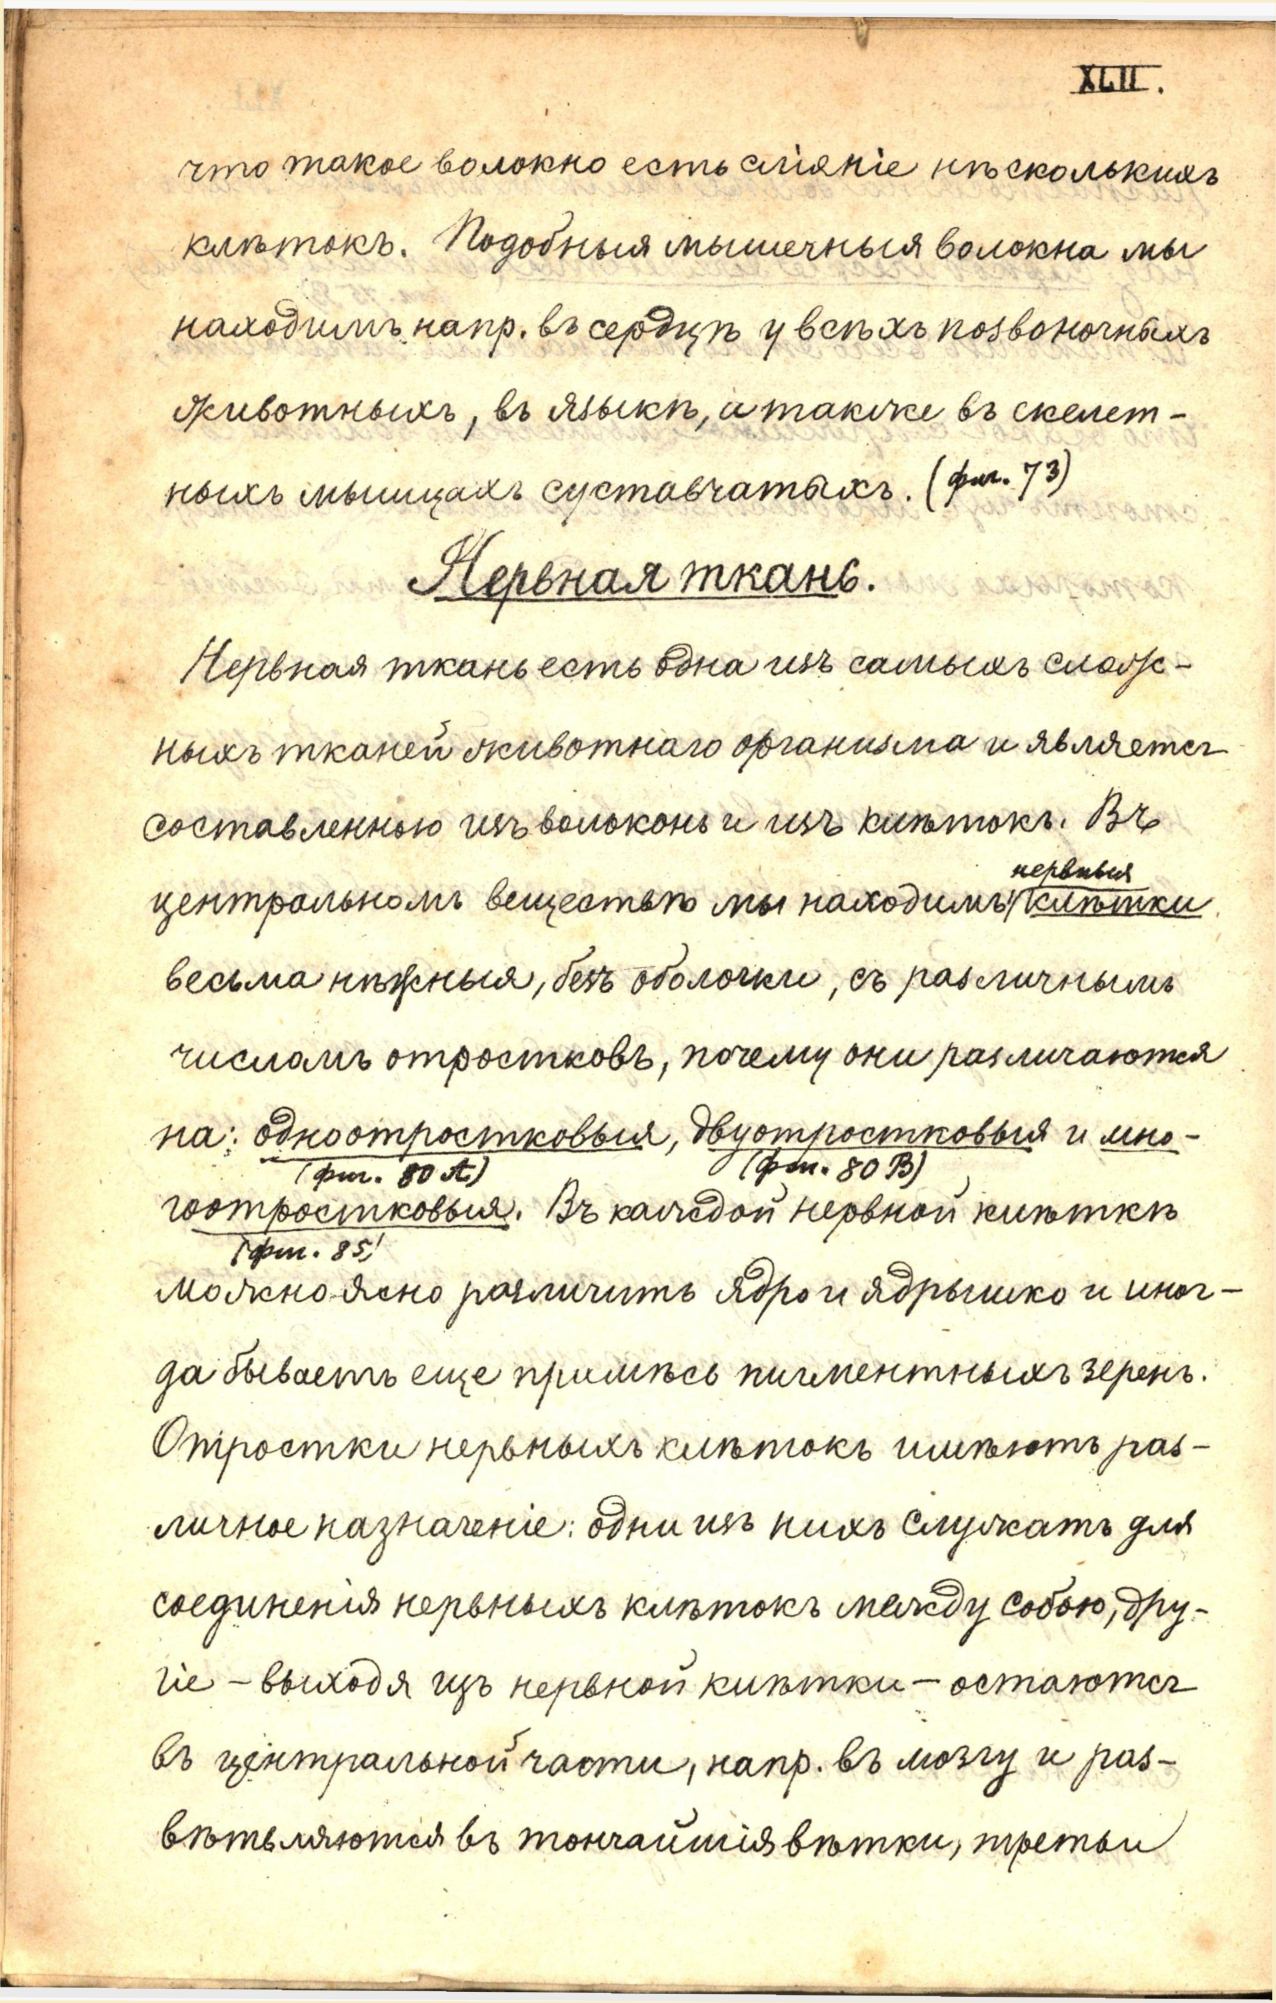 XLII.
что такое волокно есть слiянiе нѣсколькихъ
клѣтокъ. Подобныя мышечныя волокна мы
находимъ напр. въ сердцѣ у всѣхъ позвоночныхъ
животныхъ, въ языкѣ, а также въ скелет-
ныхъ мышцахъ суставчатыхъ. (фиг. 73)
Нервная ткань.
Нервная ткань есть одна изъ самыхъ слож-
ныхъ тканей животнаго организма и является
составленною изъ волоконъ и изъ клѣтокъ. Въ
нервныя
центральномъ веществѣ мы находимъ клѣтки
весьма нѣжныя, безъ оболочки, съ различнымъ
числомъ отростковъ, почему они различаются
на: одноотростковыя, двуотростковыя и мно-
(фиг. 80 A) (фиг. 80 B)
гоотростковыя. Въ каждой нервной клѣткѣ
(фиг. 85)
можно ясно различить ядро и ядрышко и иног-
да бываетъ еще примѣсь пигментныхъ зеренъ.
Отростки нервныхъ клѣтокъ имѣютъ раз-
личное назначенiе: одни изъ нихъ служатъ для
соединенiя нервныхъ клѣтокъ между собою, дру-
гiе – выходя изъ нервной клѣтки – остаются
въ центральной части, напр. въ мозгу и раз-
вѣтвляются въ тончайшiя вѣтки, третьи